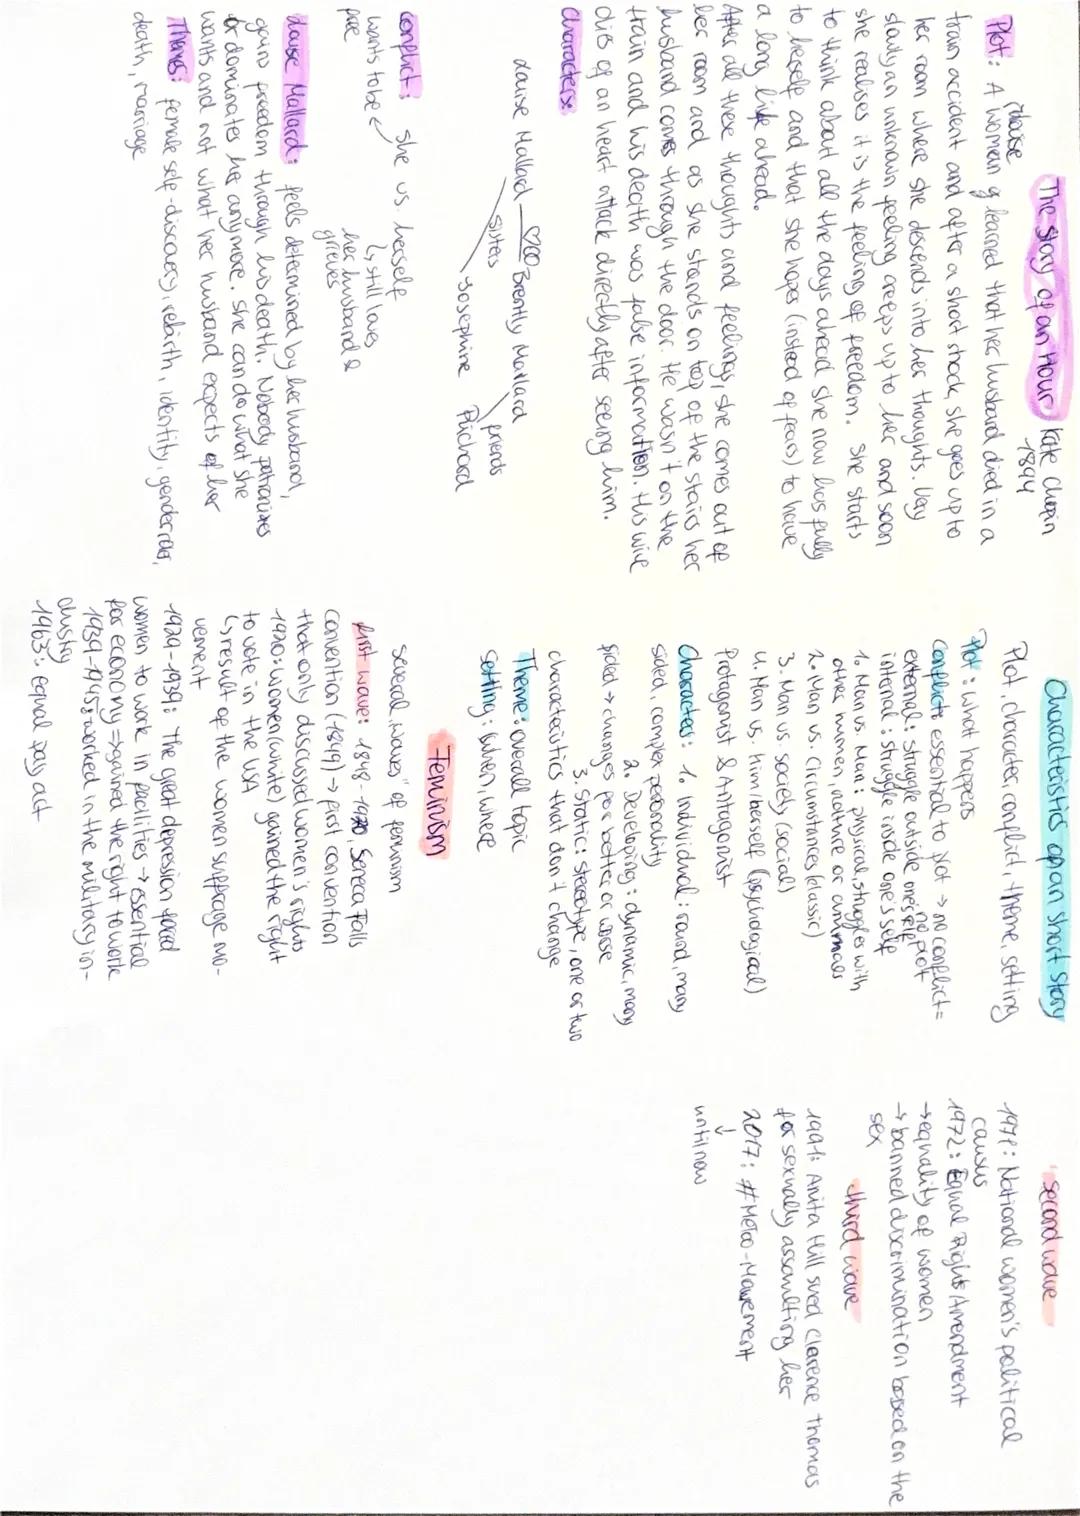 The story of an Hour Kate Chopin
1894
Louise
Plot: A women learned that her husband died in a
train accident and after a short shock, she goes up to
her room where she descends into her thoughts. Very
slowly an unknown feeling creeps up to her and soon
she realises it is the feeling of freedom. She starts
to think about all the days ahead she now has fully
to herself and that she hopes (instead of fears) to have
a long life ahead.
After all these thoughts and feelings, she comes out of
her room and as she stands on top of the stairs her
husband comes through the door. He wasn't on the
train and his death was false information. His wive
dies of an heart attack directly after seeing him.
characters:
Louise Mallard Brently Mallard
sisters friends
Josephine Richard
conflict: She vs. herself
wants to be free
still loves
her husband &
grieves
Louise Mallard: feels determined by her husband,
gains freedom through his death. Nobody patronizes
or dominates her anymore. She can do what she
wants and not what her husband expects of her
Themes: female self-discovery, rebirth, identity, gender roles,
death, marriage
Characteristics of an short story
Plot, character, conflict, theme, setting
Plot: what happens
Conflict: essential to plot → no conflict =
no plot
external: struggle outside one's self
internal: struggle inside one's self
1. Man vs. Man: physical, struggles with
other men, nature or animals
2. Man vs. Circumstances (classic)
3. Man vs. society (social)
4. Man vs. him/herself (psychological)
Protagonist & Antagonist
Characters: 1. Individual: round, many
sided, complex personality
2. Developing: dynamic, many
sided → changes for better or worse
3. Static: stereotype, one or two
characteristics that don't change
Theme: overall topic
Setting: when, where
Feminism
several „waves" of feminism
first wave: 1848-1920, Seneca Falls
convention (1849) → first convention
that only discussed women's rights
1920: women (white) gained the right
to vote in the USA
↳ result of the women suffrage mo-
vement
1929-1939: The great depression forced
women to work in facilities → essential
for economy → gained the right to work
1939-1945: worked in the military in-
dustry
1963: equal pay act
second wave
1971: National women's political
causus
1972: Equal Rights Amendment
→ equality of women
→ banned discrimination based on the
sex
third wave
1991: Anita Hill sued Clarence Thomas
for sexually assaulting her
2017: #MeToo-Movement
↓
until now